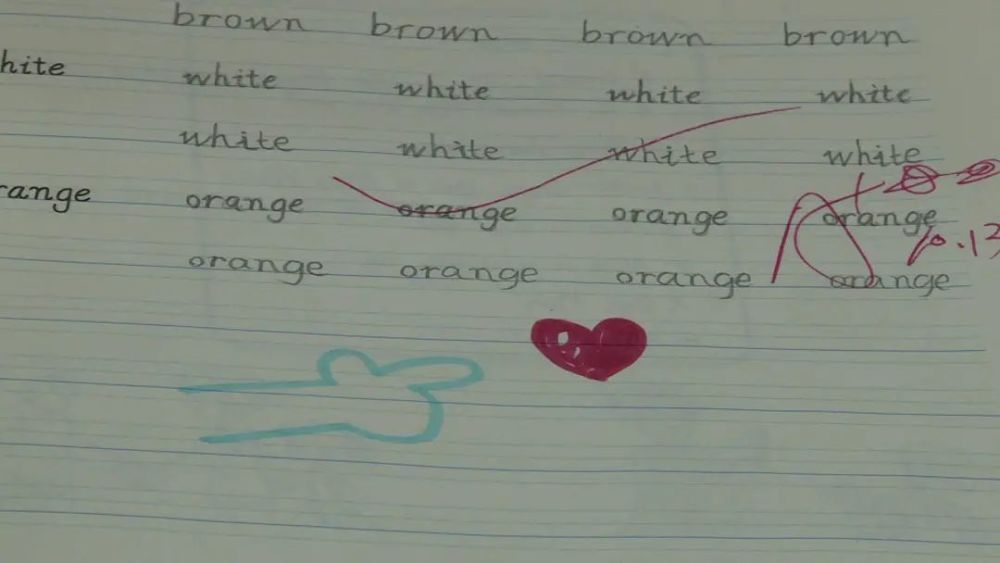 brown brown brown brown
hite white white white white
white white white white
range orange orange orange orange
orange orange orange orange
A+
10.13